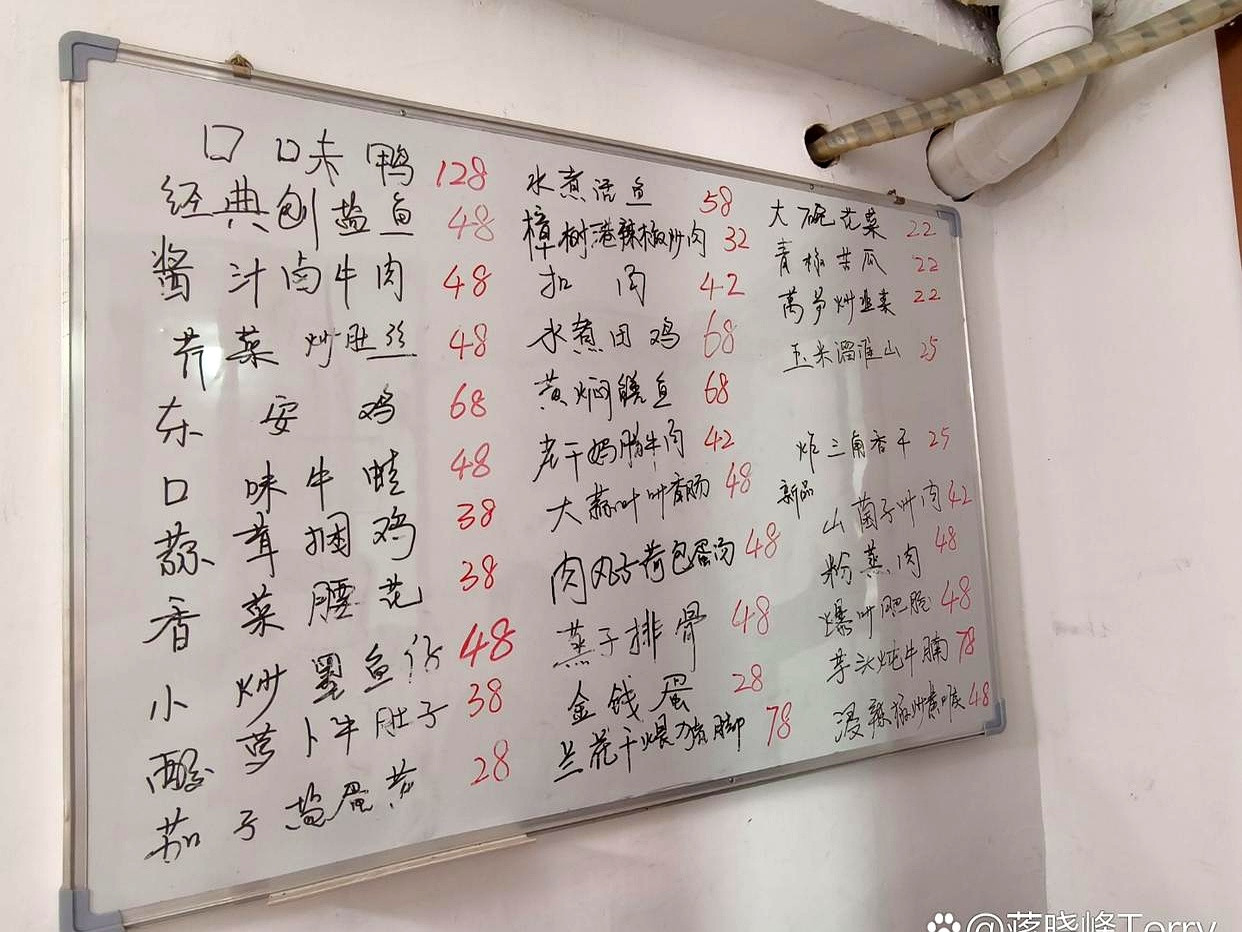 口口味鸭 128
经典刨盐鱼 48
酱汁卤牛肉 48
芹菜炒肚丝 48
东安鸡 68
口味牛蛙 48
蒜茸捆鸡 38
香菜腰花 38
小炒墨鱼仔 48
酸萝卜牛肚子 38
茄子 蛋 28
水煮活鱼 58
樟树港辣椒炒肉 32
扣肉 42
水煮田鸡 68
黄焖鳝鱼 68
老干妈腊牛肉 42
大蒜叶叶香肠 48
肉丸子荷包蛋汤 48
蒸子排骨 48
金钱蛋 28
兰花干煨猪脚 78
大碗花菜 22
青椒苦瓜 22
莴笋炒韭菜 22
玉米溜淮山 25
炸三角香干 25
新品
山菌子叶肉 42
粉蒸肉 48
爆叶肥肠 48
芋头炖牛腩 78
辣椒炒黄喉 48
@蒋晓峰Terry